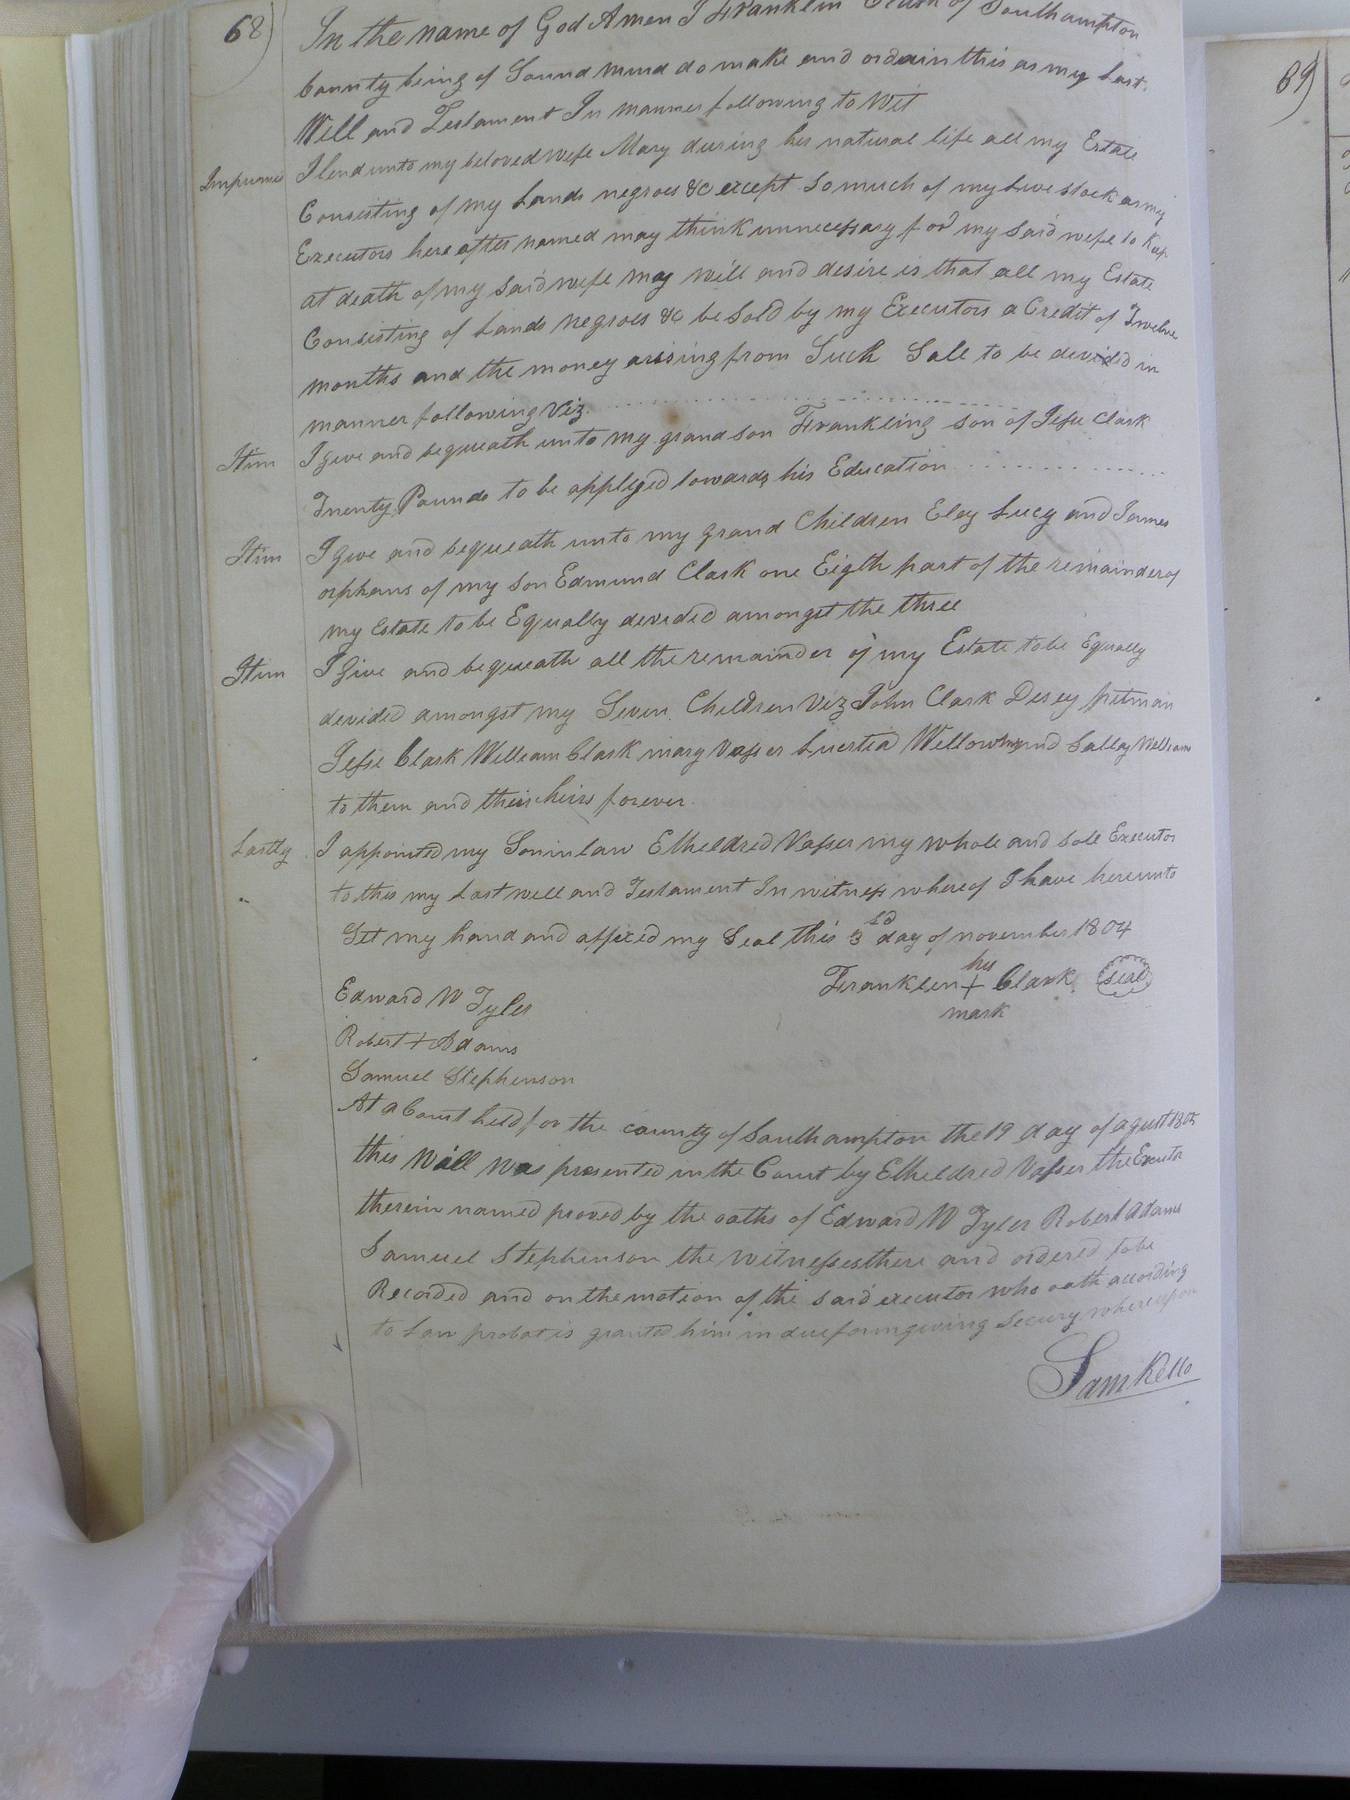 68)
In the name of God Amen I Franklin Clark of Southampton
County being of Sound mind do make and ordain this as my Last
Will and Testament In manner following to Wit
Imprimis I lend unto my beloved Wife Mary during her natural life all my Estate
Consisting of my Lands negroes &c except So much of my Live stock as my
Executors here after named may think unnecessary for my said wife to Keep
at death of my said wife my will and desire is that all my Estate
Consisting of Lands negroes &c be Sold by my Executors a Credit of Twelve
months and the money arising from Such Sale to be devided in
manner following Viz.
Item I give and bequeath unto my grand son Frankling son of Jesse Clark
Twenty Pounds to be applyed towards his Education
Item I give and bequeath unto my grand Children Eley Lucy and James
orphans of my son Edmund Clark one Eigth part of the remainder of
my Estate to be Equally devided amongst the three
Item I Give and bequeath all the remainder of my Estate to be Equally
devided amongst my Seven Children Viz John Clark Desey pitman
Jesse Clark William Clark mary Vasser Lucrtia and Salley William
to them and their heirs forever.
Lastly I appointed my Soninlaw Etheldred Vasser my whole and Sole Executor
to this my Last will and Testament In witness whereof I have hereunto
Set my hand and affixed my Seal this 3rd day of november 1804
Franklin his + mark Clark (seal)
Edward W Tyler
Robert + Adams
Samuel Stephenson
At a Court held for the county of Southampton the 19 day of agust 1805
this Will Was presented in the Court by Etheldred Vasser the Exutor
therein named proved by the oaths of Edward W Tyler Robert Adams
Samuel Stephenson the witnesses there and ordered to be
Recorded and on the motion of the said executor who oath according
to Law probat is granted him in due form giving Secury whereupon
Sam Kello
69)